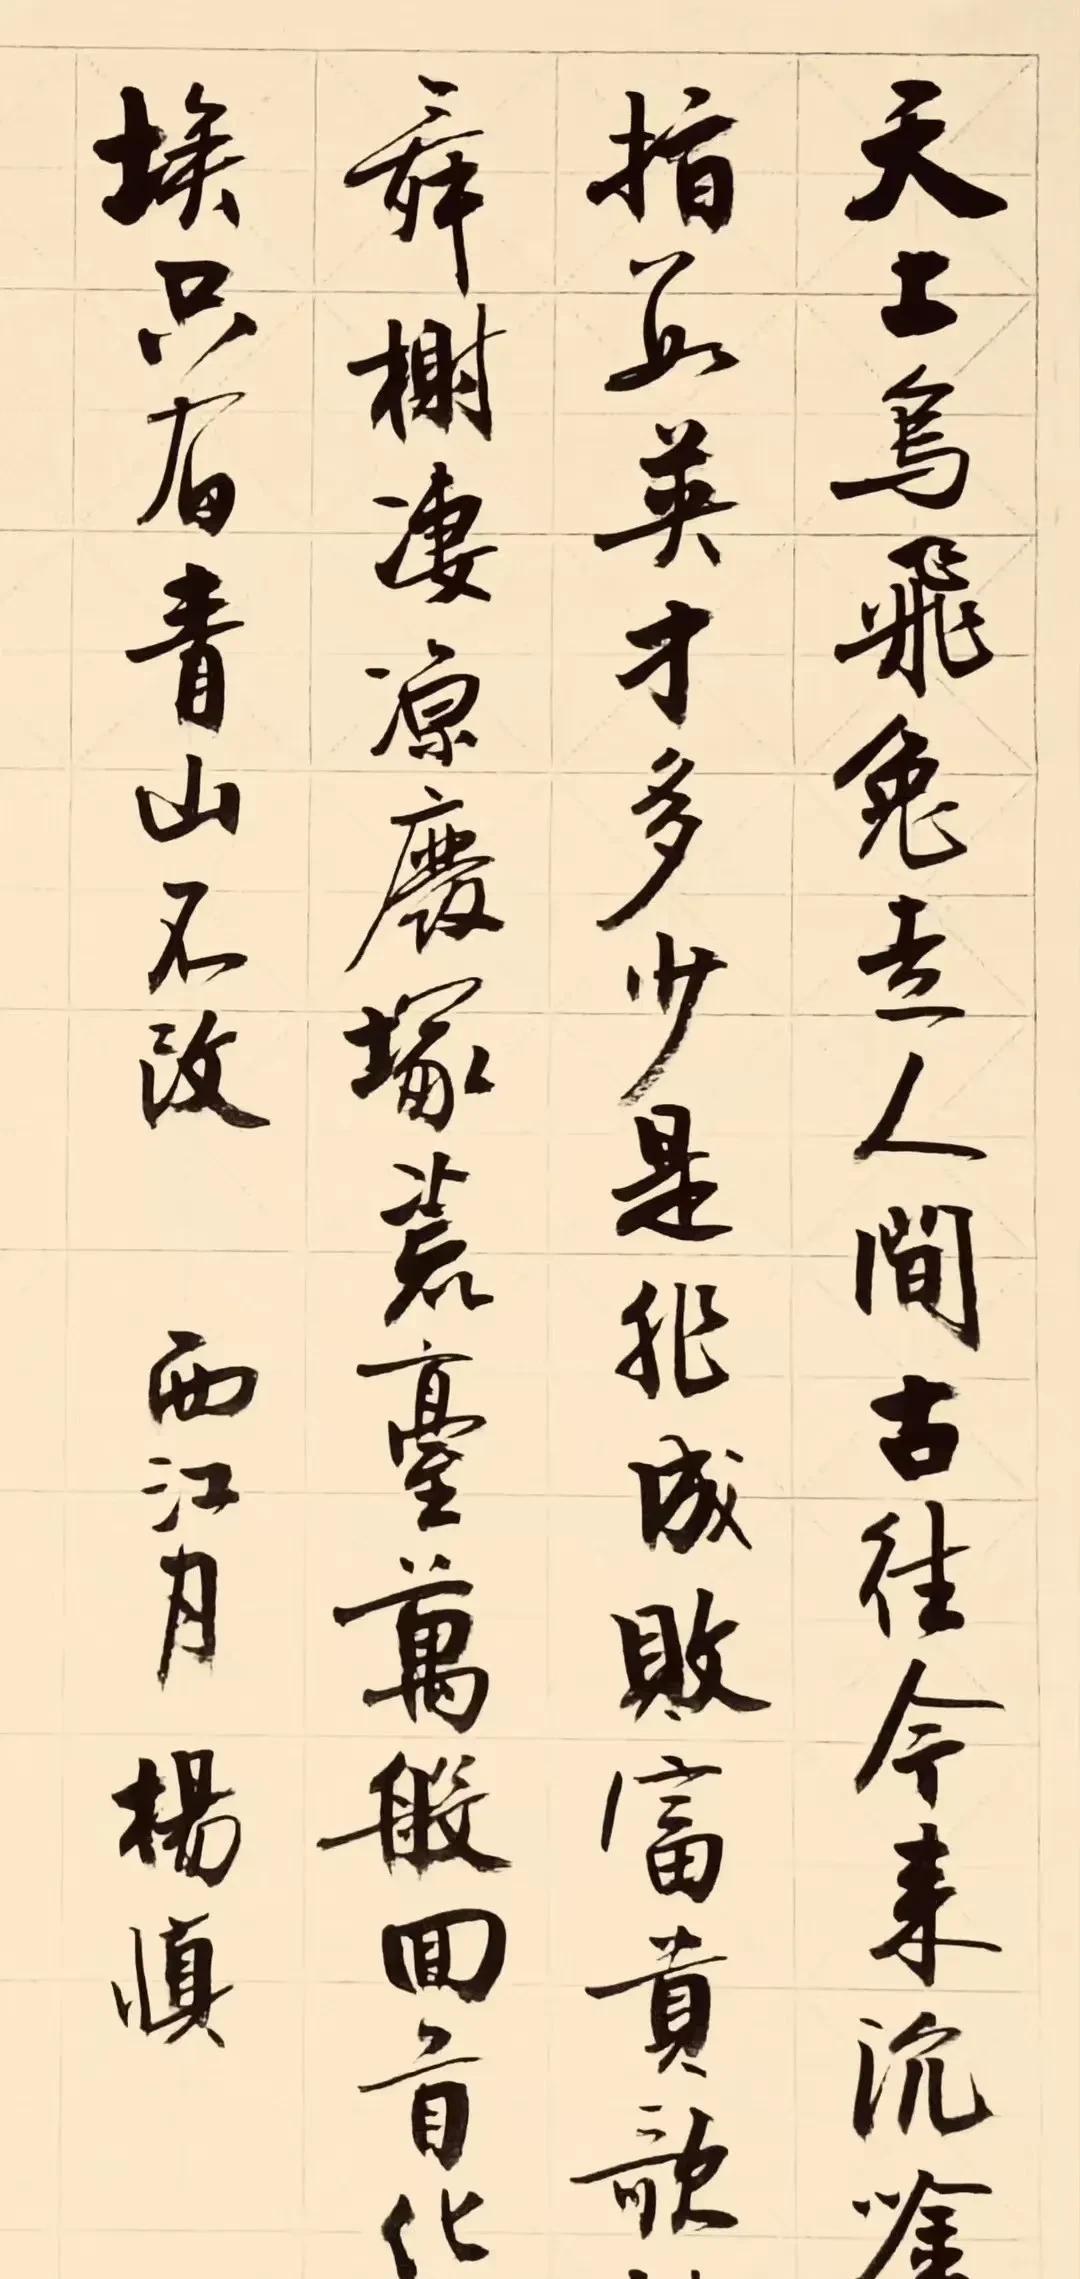 天上烏飛兔走人間古往今来沉唫
指數英才多少是非成敗富貴歌
舞榭凄凉廢塚荒臺萬般回首化
埃只有青山不改 西江月 楊慎